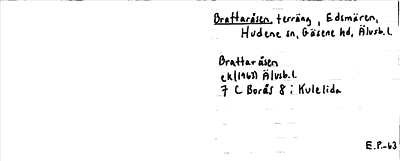 Brattaråsen, terräng, Edsmären,
Hudene sn, Gäsene hd, Älvsb.l.
Brattaråsen
ek(1963) Älvsb.l.
7 C Borås 8 i Kulelida
E.P.-63